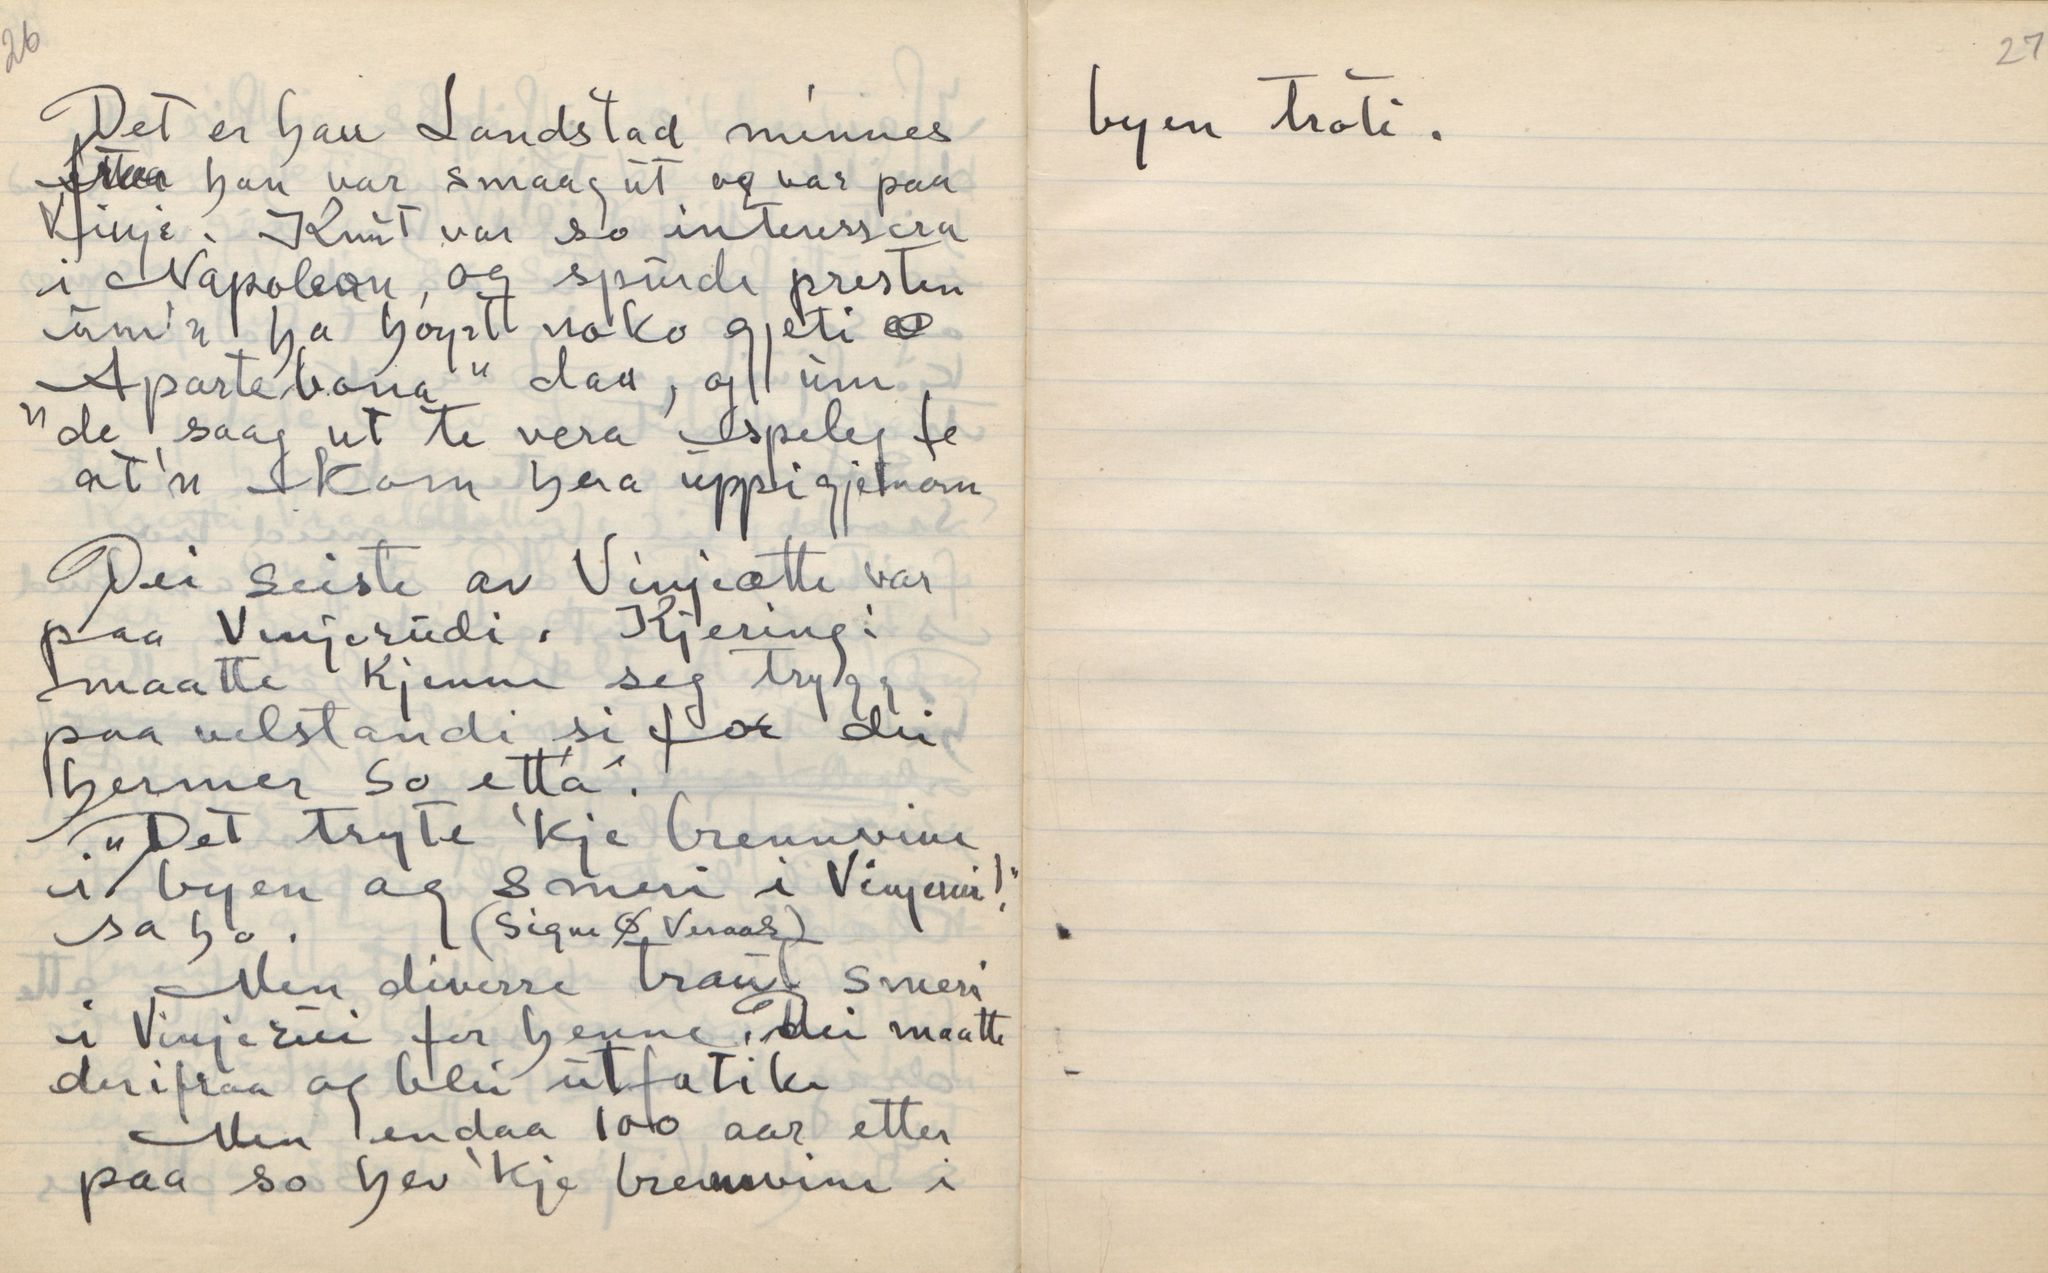 26
Det er han Landstad minnes
fraa han var smaagut og var paa
Vinje. Knut var so interessera
i Napoleon, og spurde presten
um'n ha høyrt noko gjeti
Apartebona" daa, og um
"de saag ut te vera speleg fe
at'n kom hera uppigjenom
Dei seiste av Vinjeætte var
paa Vinjerudi. Kjeringi
maatte kjenne seg trygg
paa velstandi si for dei
hermer so ettá.
"Det tryte 'kje brennvine
i byen og smeri i Vinjerui!"
sa ho. (Signe Ø. Veraas)
Men diverre traut smeri
i Vinjerui for henne. Dei maatte
derifraa og blei utfatike
Men endaa 100 aar etter
paa so hev 'kje brennvine i
27
byen troti.